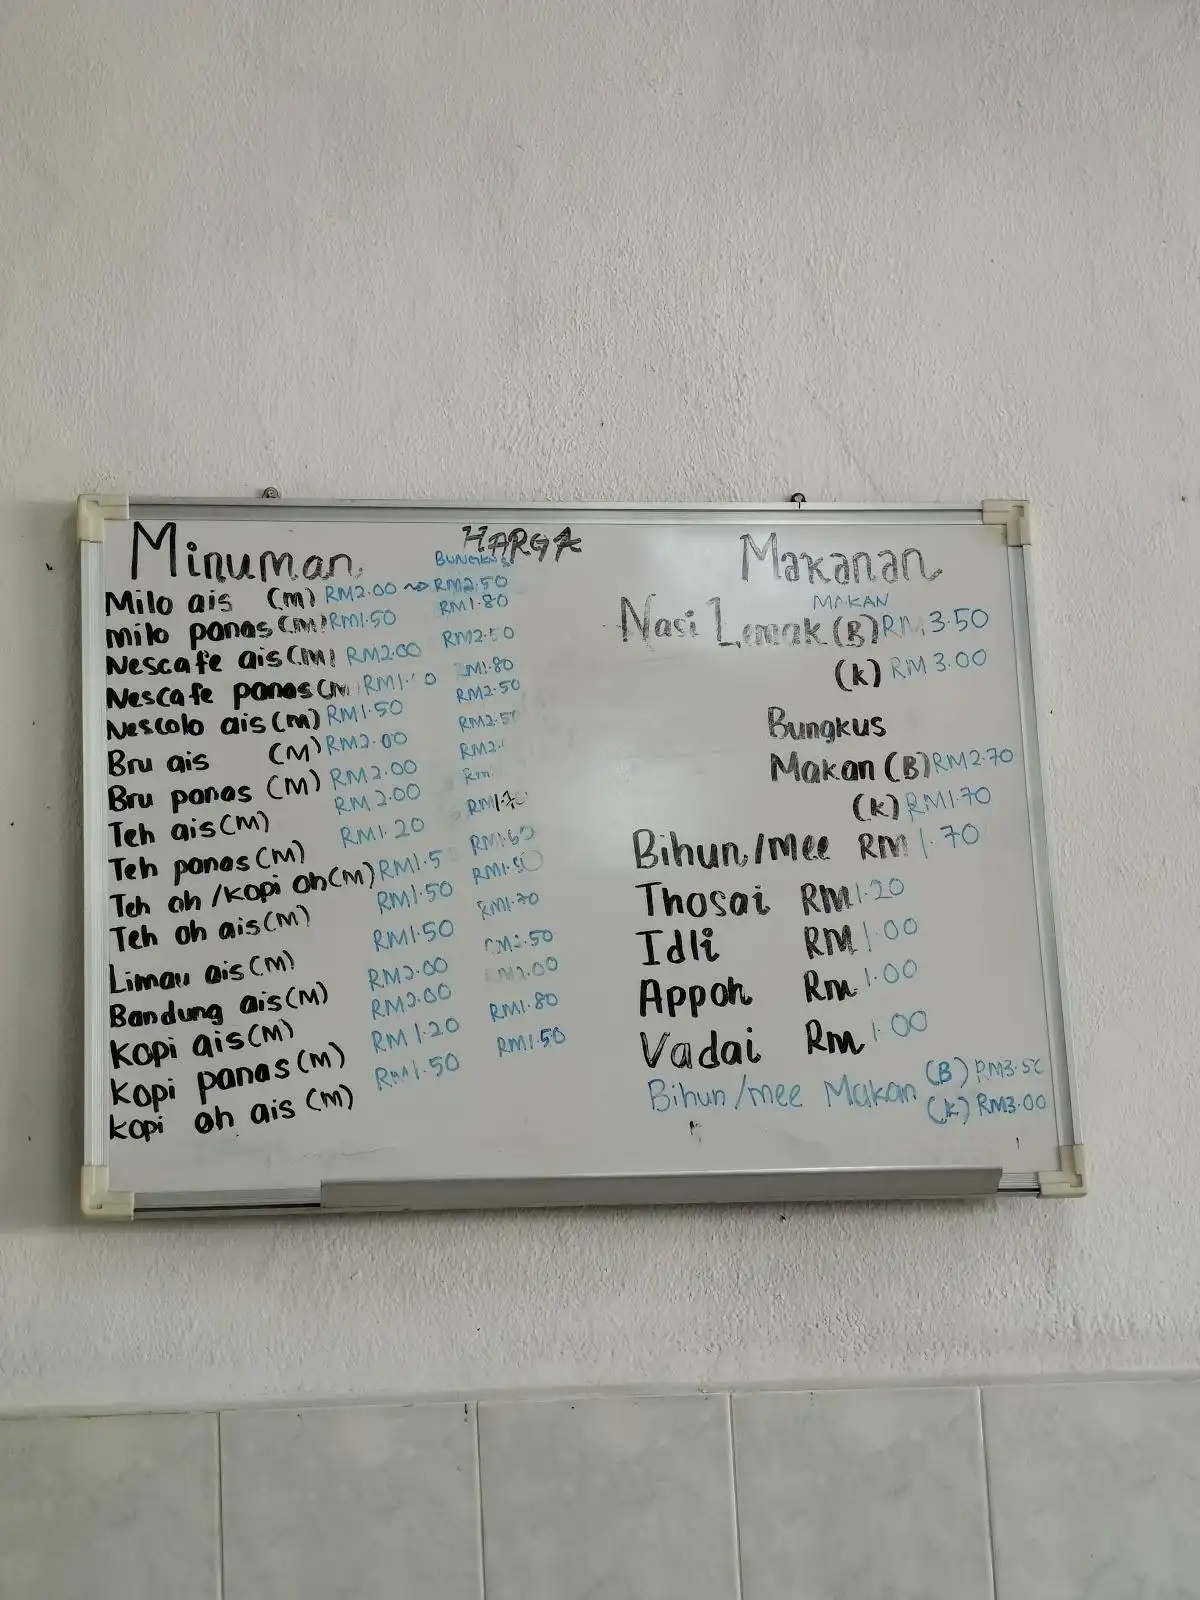 Minuman HARGA
BUNGKUS
Milo ais (m) RM2.00 → RM2.50
milo panas (m) RM1.50 RM1.80
Nescafe ais (m) RM2.00
Nescafe panas (m RM1.80
Nescolo ais (m) RM1.50 RM2.50
Bru ais (M) RM2.00
Bru panas (M) RM2.00
Teh ais (M) RM2.00
Teh panas (m) RM1.20 RM1.70
Teh oh / kopi oh (m) RM1.5
Teh oh ais (m) RM1.50
Limau ais (m) RM1.50 RM1.70
Bandung ais (M) RM2.00 RM2.50
Kopi ais (m) RM2.00 RM2.00
Kopi panas (m) RM1.20 RM1.80
kopi oh ais (m) RM1.50 RM1.50
Makanan
MAKAN
Nasi Lemak (B) RM 3.50
(k) RM 3.00
Bungkus
Makan (B) RM2.70
(k) RM1.70
Bihun/mee RM 1.70
Thosai RM 1.20
Idli RM 1.00
Appoh Rm 1.00
Vadai Rm 1.00
Bihun/mee Makan (B) RM3.50
(k) RM3.00